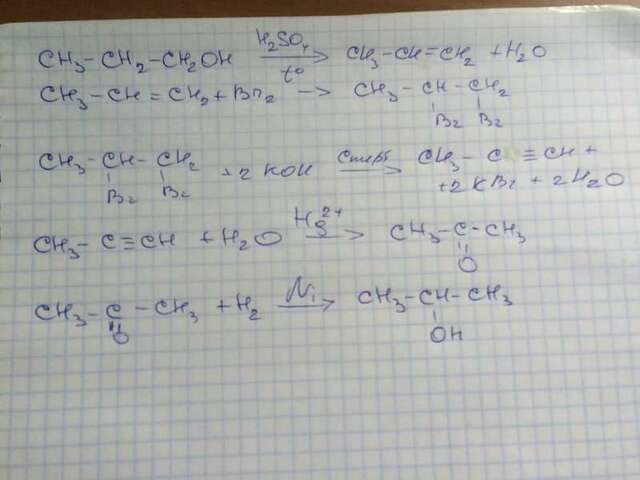 CH₃-CH₂-CH₂OH H₂SO₄ t° → CH₃-CH=CH₂ + H₂O
CH₃-CH=CH₂ + Br₂ → CH₃-CH-CH₂
Br Br
CH₃-CH-CH₂ + 2 KOH спирт → CH₃-C≡CH +
Br Br
+2 KBr + 2 H₂O
CH₃-C≡CH + H₂O Hg²⁺ → CH₃-C-CH₃
O
CH₃-C-CH₃ + H₂ Ni → CH₃-CH-CH₃
O
OH